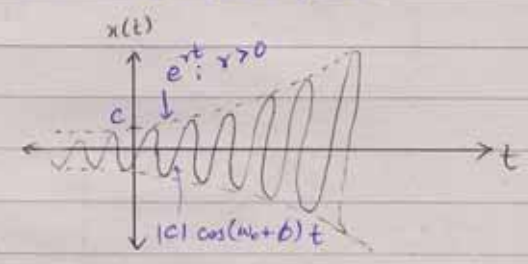 x(t)
e^{rt} ; r>0
C
t
|C| cos(ω₀+ϕ) t